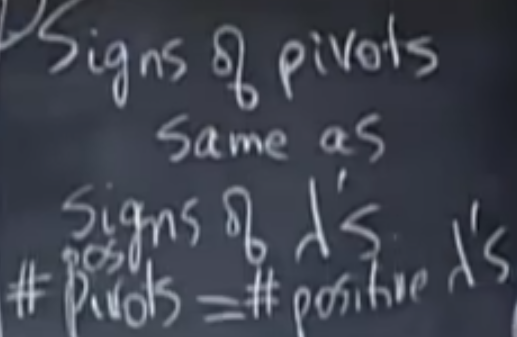 Signs of pivots
same as
signs of λ's.
pos
# pivots = # positive λ's